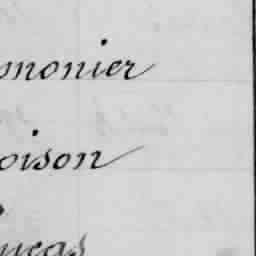 monier
oison
ucas